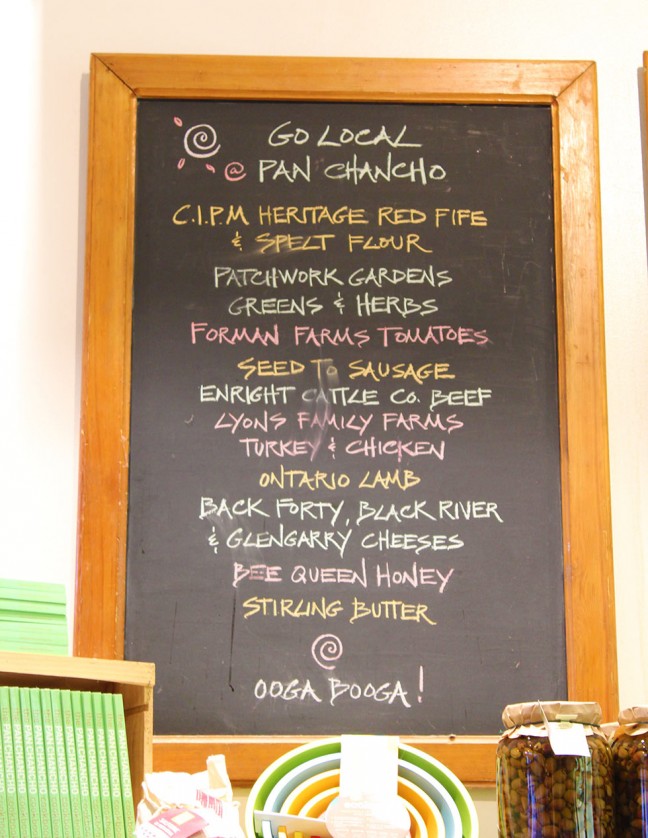 GO LOCAL
@ PAN CHANCHO
C.I.P.M HERITAGE RED FIFE
& SPELT FLOUR
PATCHWORK GARDENS
GREENS & HERBS
FORMAN FARMS TOMATOES
SEED TO SAUSAGE
ENRIGHT CATTLE CO. BEEF
LYONS FAMILY FARMS
TURKEY & CHICKEN
ONTARIO LAMB
BACK FORTY, BLACK RIVER
& GLENGARRY CHEESES
BEE QUEEN HONEY
STIRLING BUTTER
OOGA BOOGA!